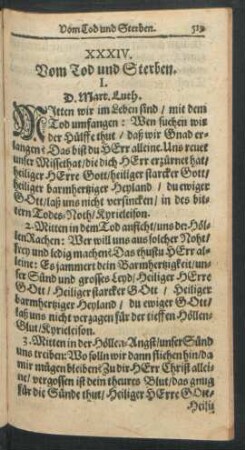 Vom Tod und Sterben. 519
XXXIV.
Vom Tod und Sterben.
I.
D. Mart. Luth.
MItten wir im Leben sind / mit dem
Tod umfangen: Wen suchen wir
der Hülffe thut / daß wir Gnad er-
langen? Das bist du HErr alleine. Uns reuet
unser Missethat / die dich HErr erzürnet hat /
heiliger HErre Gott / heiliger starcker Gott /
heiliger barmhertziger Heyland / du ewiger
GOtt / laß uns nicht versincken / in des bit-
tern Todes-Noth / Kyrieleison.
2. Mitten in dem Tod anficht / uns der Höl-
len Rachen: Wer will uns aus solcher Noht /
frey und ledig machen? Das thustu HErr al-
leine: Es jammert dein Barmhertzigkeit / un-
ser Sünd und grosses Leyd / Heiliger HErre
GOtt / Heiliger starcker GOtt / Heiliger
barmhertziger Heyland / du ewiger GOtt /
laß uns nicht verzagen für der tieffen Höllen-
Glut / Kyrieleison.
3. Mitten in der Höllen-Angst / unser Sünd
uns treiben: Wo solln wir dann fliehen hin / da
wir mügen bleiben? Zu dir HErr Christ allei-
ne / vergossen ist dein theures Blut / das gnug
für die Sünde thut / Heiliger HErre GOtt /
Heilig